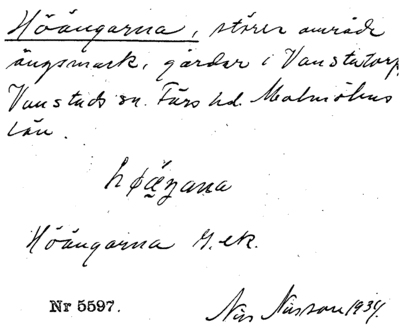 Höängarna, större område
ängsmark, gårdar i Vanstatorp,
Vanstads sn. Färs hd. Malmöhus
län.
Höängarna G. ek.
Nr 5597.
Nils Nilsson 1934.